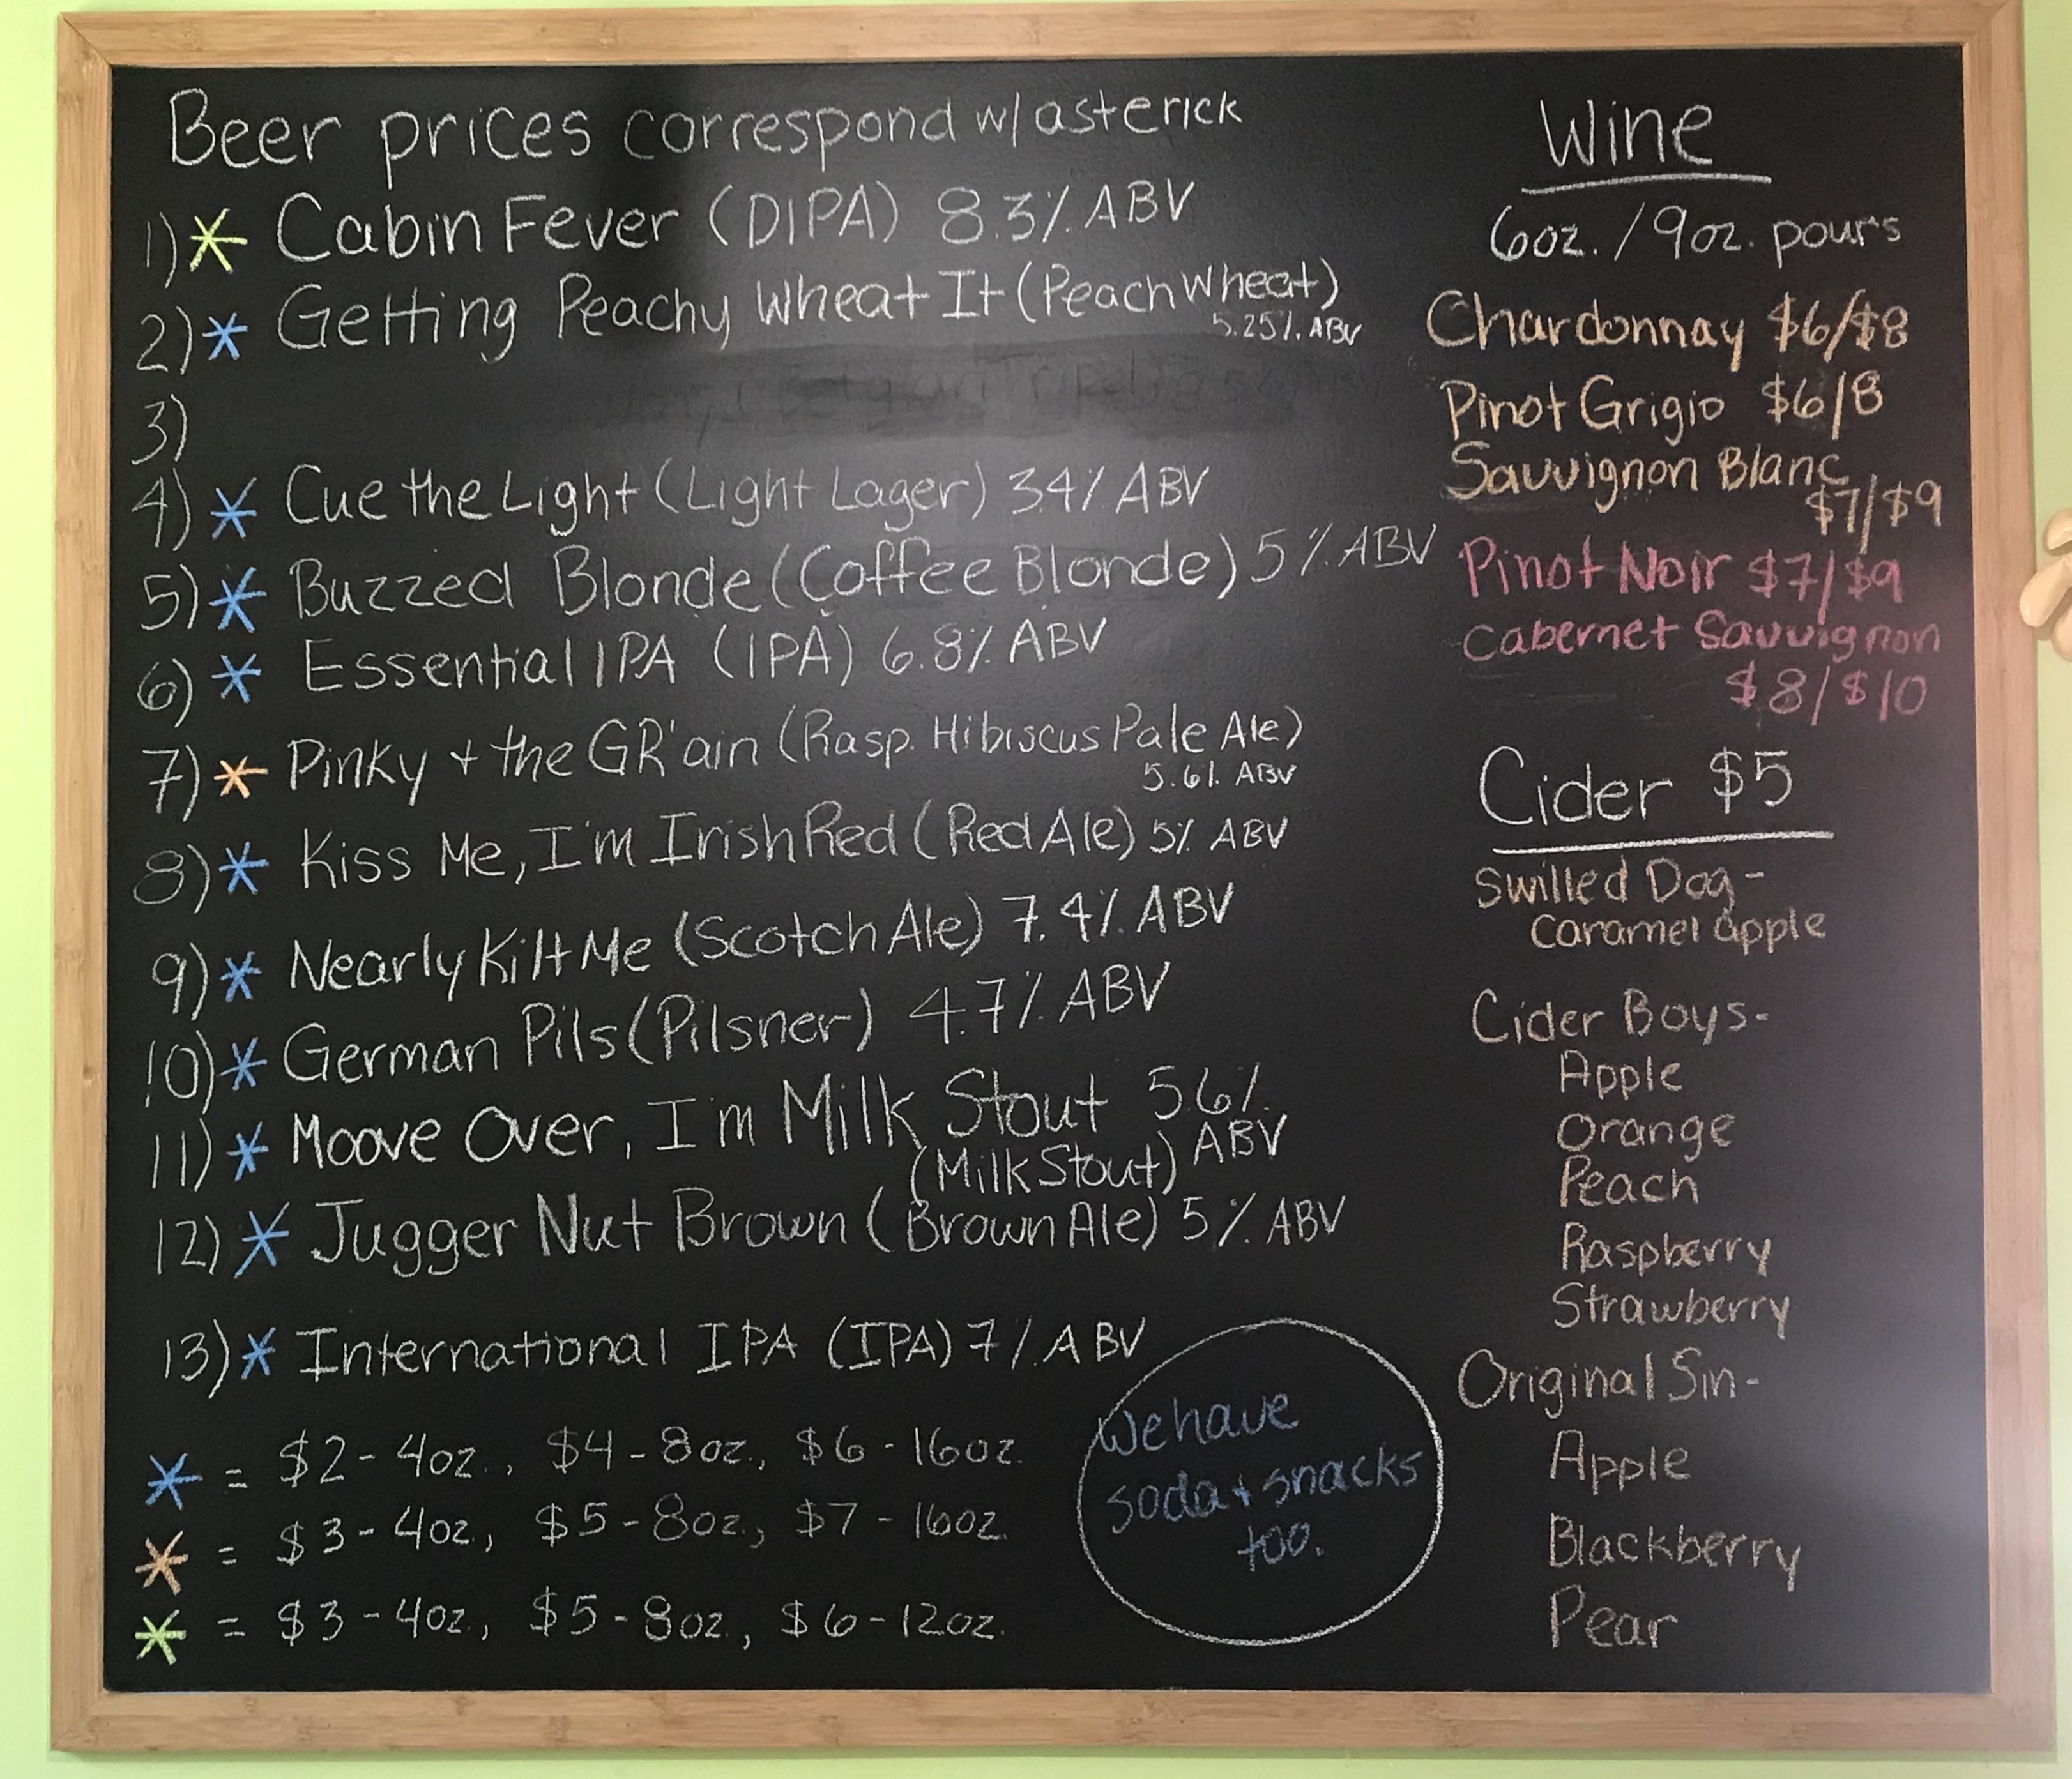 Beer prices correspond w/ asterick
1) * Cabin Fever (DIPA) 8.3% ABV
2) * Getting Peachy Wheat It (Peach Wheat)
5.25% ABV
3)
4) * Cue the Light (Light Lager) 3.4% ABV
5) * Buzzed Blonde (Coffee Blonde) 5% ABV
6) * Essential IPA (IPA) 6.8% ABV
7) * Pinky + the GR'ain (Rasp. Hibiscus Pale Ale)
5.6% ABV
8) * Kiss Me, I'm Irish Red (Red Ale) 5% ABV
9) * Nearly Kilt Me (Scotch Ale) 7.4% ABV
10) * German Pils (Pilsner) 4.7% ABV
11) * Moove Over, I'm Milk Stout 5.6%
(Milk Stout) ABV
12) * Jugger Nut Brown (Brown Ale) 5% ABV
13) * International IPA (IPA) 7% ABV
* = $2-4oz., $4-8oz., $6-16oz.
* = $3-4oz., $5-8oz., $7-16oz.
* = $3-4oz., $5-8oz., $6-12oz.
We have
soda + snacks
too.
Wine
6oz. / 9oz. pours
Chardonnay $6/$8
Pinot Grigio $6/8
Sauvignon Blanc
$7/$9
Pinot Noir $7/$9
Cabernet Sauvignon
$8/$10
Cider $5
Swilled Dog-
Caramel Apple
Cider Boys-
Apple
Orange
Peach
Raspberry
Strawberry
Original Sin-
Apple
Blackberry
Pear